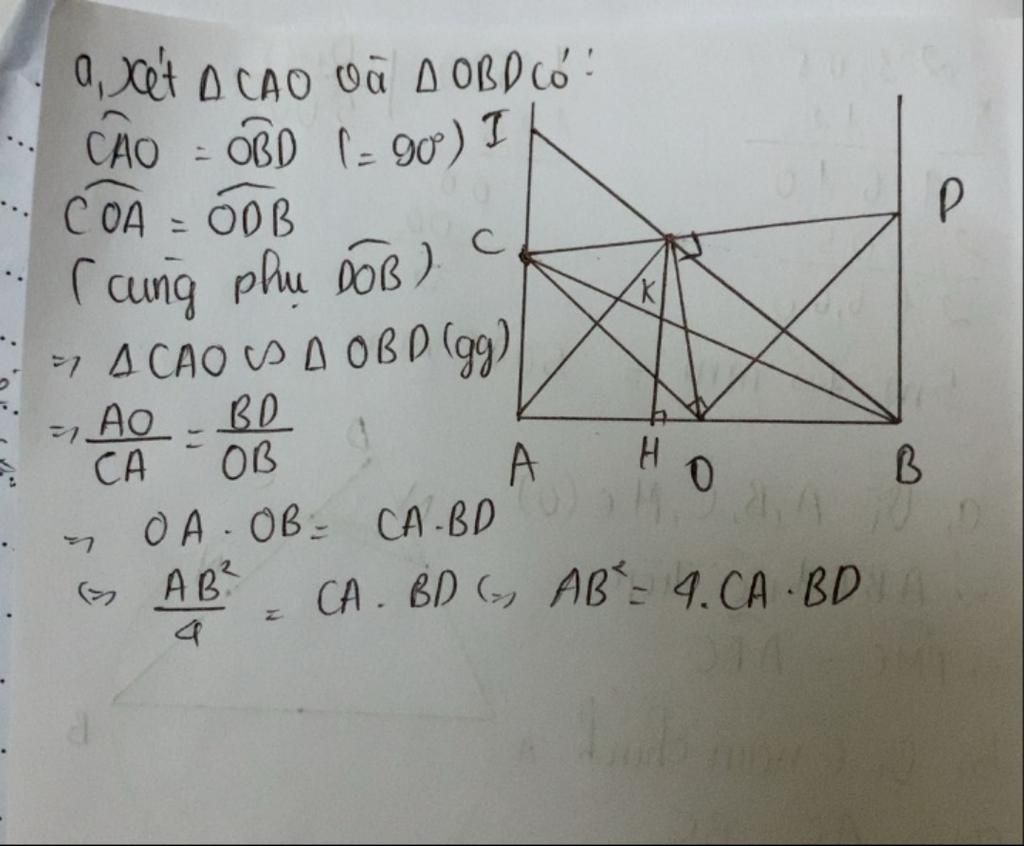 a, xét Δ CAO và Δ OBD có:
CAO = OBD (= 90°)
COA = ODB
(cùng phụ DOB)
=> Δ CAO ∽ Δ OBD (gg)
=> AO/CA = BD/OB
=> OA . OB = CA.BD
<=> AB²/4 = CA . BD <=> AB² = 4. CA . BD
I
C
D
K
A
H
O
B